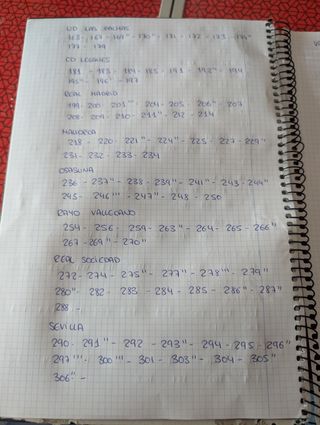 UD LAS PALMAS
163 - 167 - 169" - 170" - 171 - 172 - 173 - 174"
177 - 179
CD LEGANES
181 - 183 - 184 - 185 - 191 - 192" - 194
195" - 196" - 197
REAL MADRID
199 - 200 - 201" - 204 - 205 - 206" - 207
208 - 209 - 210 - 211" - 212 - 214
MALLORCA
218 - 220 - 221" - 224" - 225 - 227 - 229"
231 - 232 - 233 - 234
OSASUNA
236 - 237" - 238 - 239" - 241" - 243 - 244"
245 - 246"" - 247" - 248 - 250
RAYO VALLECANO
254 - 256 - 259 - 263" - 264 - 265 - 266"
267 - 269" - 270"
REAL SOCIEDAD
272 - 274 - 275" - 277" - 278"" - 279"
280" - 282 - 283 - 284 - 285 - 286" - 287"
288 -
SEVILLA
290 - 291" - 292 - 293" - 294 - 295 - 296"
297"" - 300"" - 301 - 303" - 304 - 305"
306" -